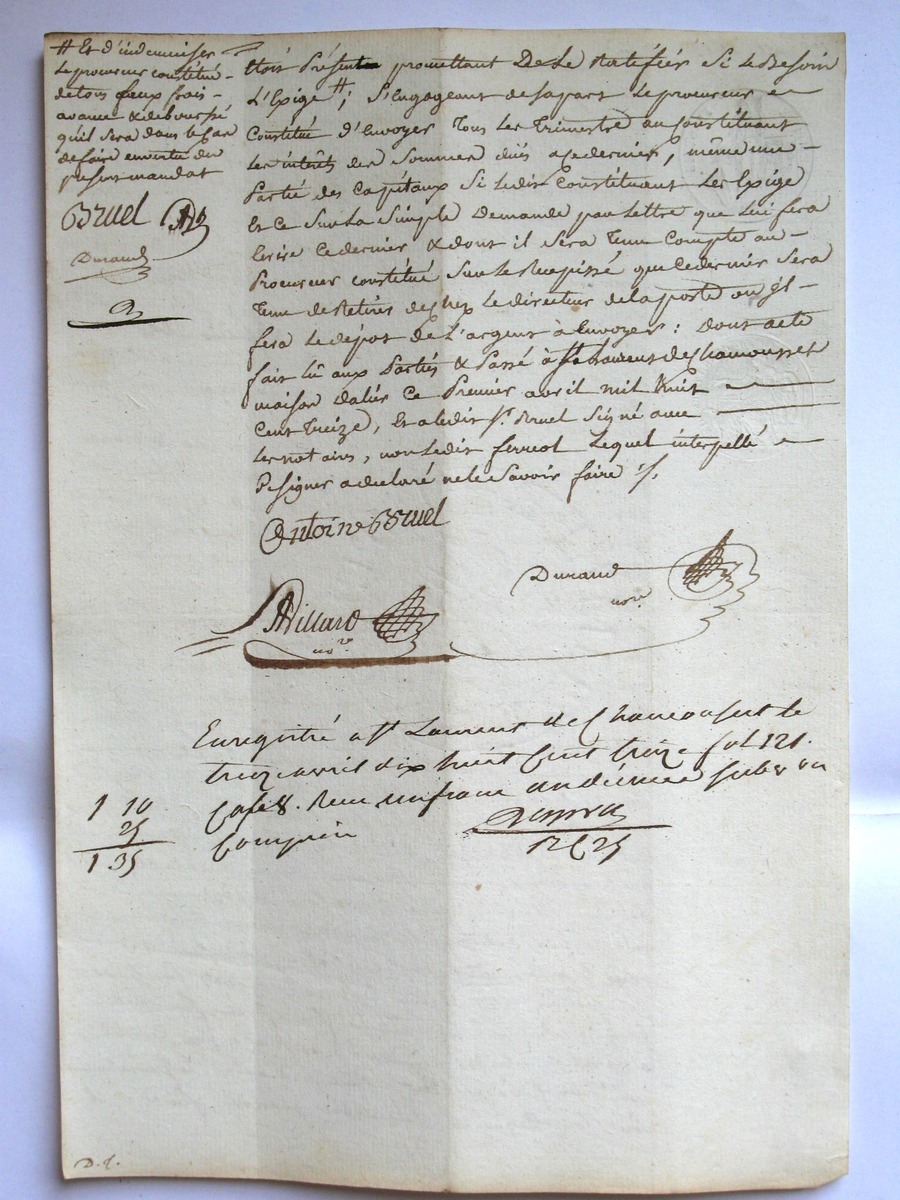 # Et d'indemniser
Le procureur constitué
de tous ceux frais
avance & deboursé
qu'il sera dans le Cas
de faire en vertu du
present mandat
Bruel
Durand
étoit Présent promettant De Le Ratiffiér Si le Besoin
L'Exige #; S'Engageant de sa part Le procureur
Constitué d'Envoyer Tous Les Trimestre au Constituant
Les intérêts des Sommes dües a ce dernier, même une
Partié des Capitaux Si ledit Constituant Les Exige
Et ce Sur La Simple Demande par Lettre que Lui fera
Ecrire ce dernier & dont il Sera Tenu Compte au
Procureur constitué Sur le Recepissé que ce dernier Sera
Tenu de Retirer de chez Le directeur de la poste ou il
fera Le dépot de L'argent à Envoyer: Dont acte
fait Lû aux Partiés & Passé à St Laurent de Chamousset
maison dalier Ce Premier avril mil huit
Cent Treize, Et a ledit Sr. Bruel Signé avec
Les notaires, non Ledit ferreol Lequel interpellé
De Signer a declaré ne le Savoir faire ./.
Antoine Bruel
Durand
nore
Villard
nore
Enregistré a St Laurent de Chamousset le
treize avril dix huit Cent treize fol 121
Case 8. Reçu un franc un dixième Subvon
Comprise
1 10
25
1 35
D. J.